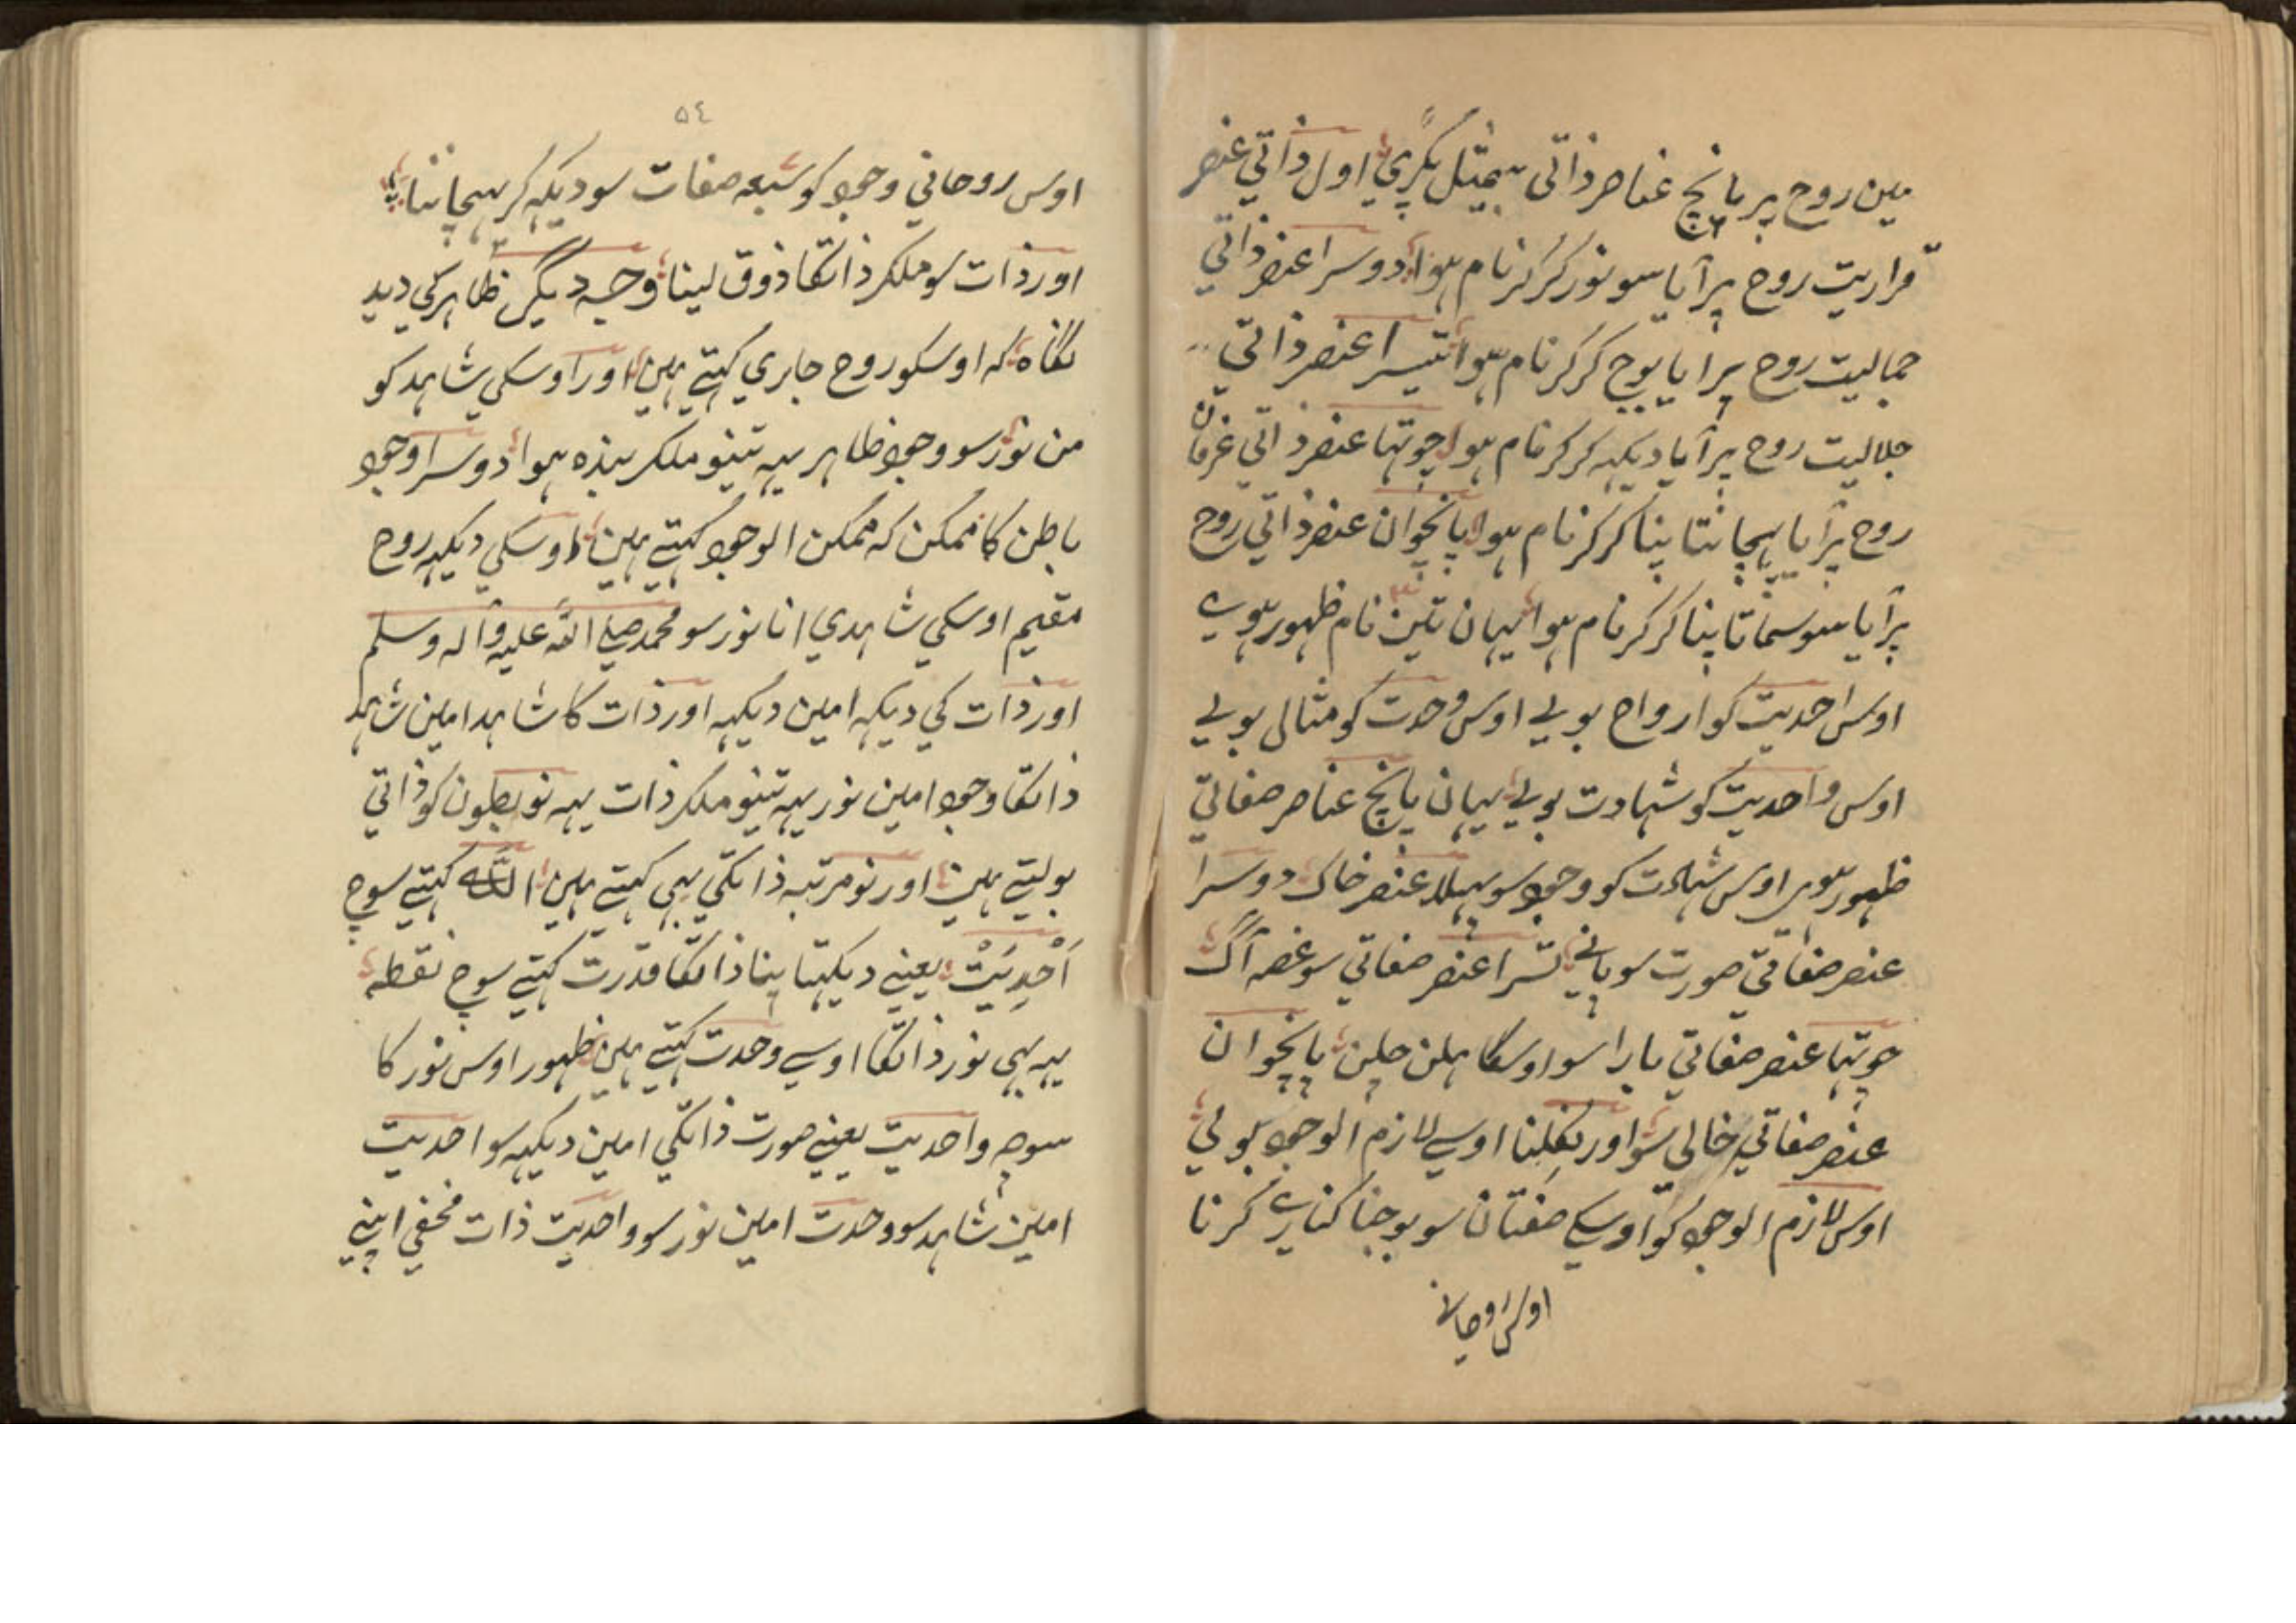 مین روح پر پانچ عناصر ذاتی اول ذاتی عنصر
قراریت روح پر آیا سو نور کر کر نام ہوا دوسرا عنصر ذاتی
جمالیت روح پر ایا بوج کر کر نام ہوا تیسرا عنصر ذاتی
جلالیت روح پر آیا دیکہہ کر کر نام ہوا چوتہا عنصر ذاتی عرفان
روح پر آیا پہچانتا پنا کر کر نام ہوا پانچوان عنصر ذاتی روح
پر آیا سو سماتا پنا کر کر نام ہوا یہان تین نام ظہور ہوے
اوس احدیت کو ارواح بولے اوس وحدت کو مثالی بولے
اوس واحدیت کو شہادت بولے یہان پانچ عناصر صفاتی
ظہور ہوے اوس شہادت کو وجود سو پہلا عنصر خاک دوسرا
عنصر صفاتی صورت سو پانی تسرا عنصر صفاتی سو غصہ آگ
چوتہا عنصر صفاتی بارا سو اوسکا ہلن چلن پانچوان
عنصر صفاتی خالی سو اور اوسے لازم الوجود بولے
اوس لازم الوجود کو اوسکے صفتان سو بوجنا کنارے کرنا
اوس روحانی
٥٤
اوس روحانی وجود کو سبعہ صفات سو دیکہہ کر پہچاننا
اور ذات سو ملکر ذاتکا ذوق لینا وجہ دیگر ظاہر کی دید
نگاہ کہ اوسکو روح جاری کہتے ہین اور اوسکی شاہد کو
من نور سو وجود ظاہر یہہ تینو ملکر بندہ ہوا دوسرا وجود
باطن کا ممکن کہ ممکن الوجود کہتے ہین اوسکی دیکہہ روح
مقیم اوسکی شاہدی انا نور سو محمد صلے اللہ علیہ وآلہ وسلم
اور ذات کی دیکہہ امین دیکہہ اور ذات کا شاہد امین شاہد
ذاتکا وجود امین نور یہہ تینو ملکر ذات یہہ نو بطون کو ذاتی
بولتے ہین اور نو مرتبہ ذاتکی بہی کہتے ہین اللہ کہتے سوچ
اَحْدِیَتْ یعنے دیکہتا پنا ذاتکا قدرت کہتے سوچ نقطہ
یہہ بہی نور ذاتکا اوسے وحدت کہتے ہین ظہور اوس نور کا
سوچہ واحدیت یعنے صورت ذاتکی امین دیکہہ سو احدیت
امین شاہد سو وحدت امین نور سو واحدیت ذات مخفی اپنے